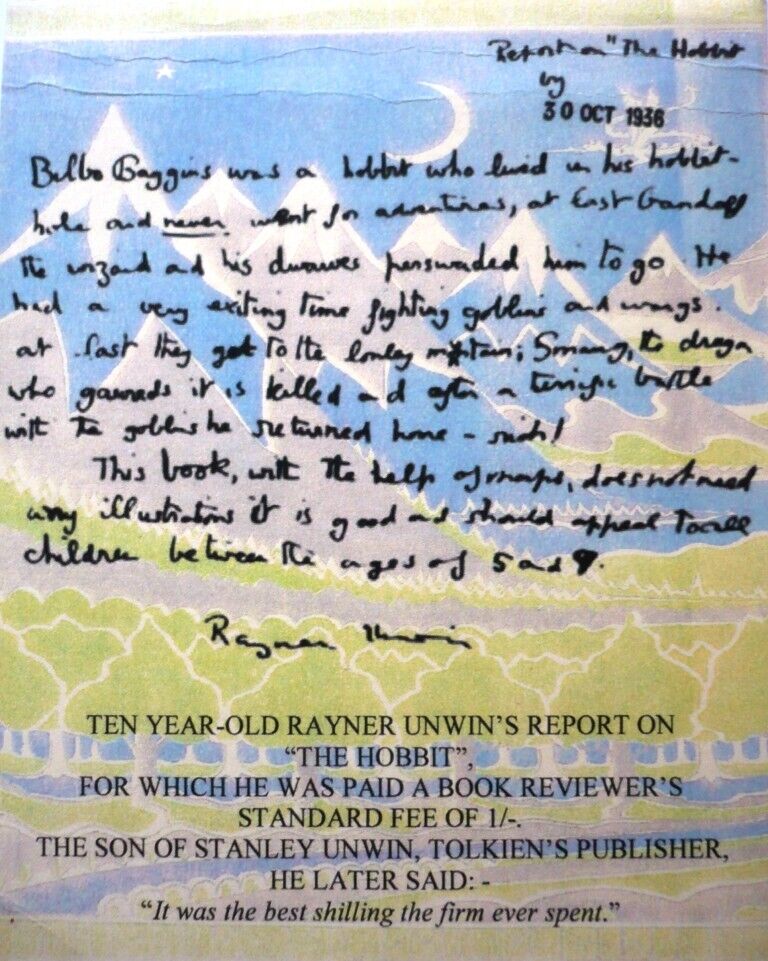 Report on "The Hobbit
by
30 OCT 1936
Bilbo Baggins was a hobbit who lived in his hobbit-
hole and never went for adventures, at last Gandalf
the wizard and his dwarves perswaded him to go. He
had a very exiting time fighting goblins and wargs.
at last they got to the lonley mountain; Smaug, the dragon
who gawreds it is killed and after a terrific battle
with the goblins he returned home - rich!
This book, with the help of maps, does not need
any illustrations it is good and should appeal to all
children between the ages of 5 and 9.
Rayner Unwin
TEN YEAR-OLD RAYNER UNWIN'S REPORT ON
"THE HOBBIT",
FOR WHICH HE WAS PAID A BOOK REVIEWER'S
STANDARD FEE OF 1/-.
THE SON OF STANLEY UNWIN, TOLKIEN'S PUBLISHER,
HE LATER SAID: -
"It was the best shilling the firm ever spent."